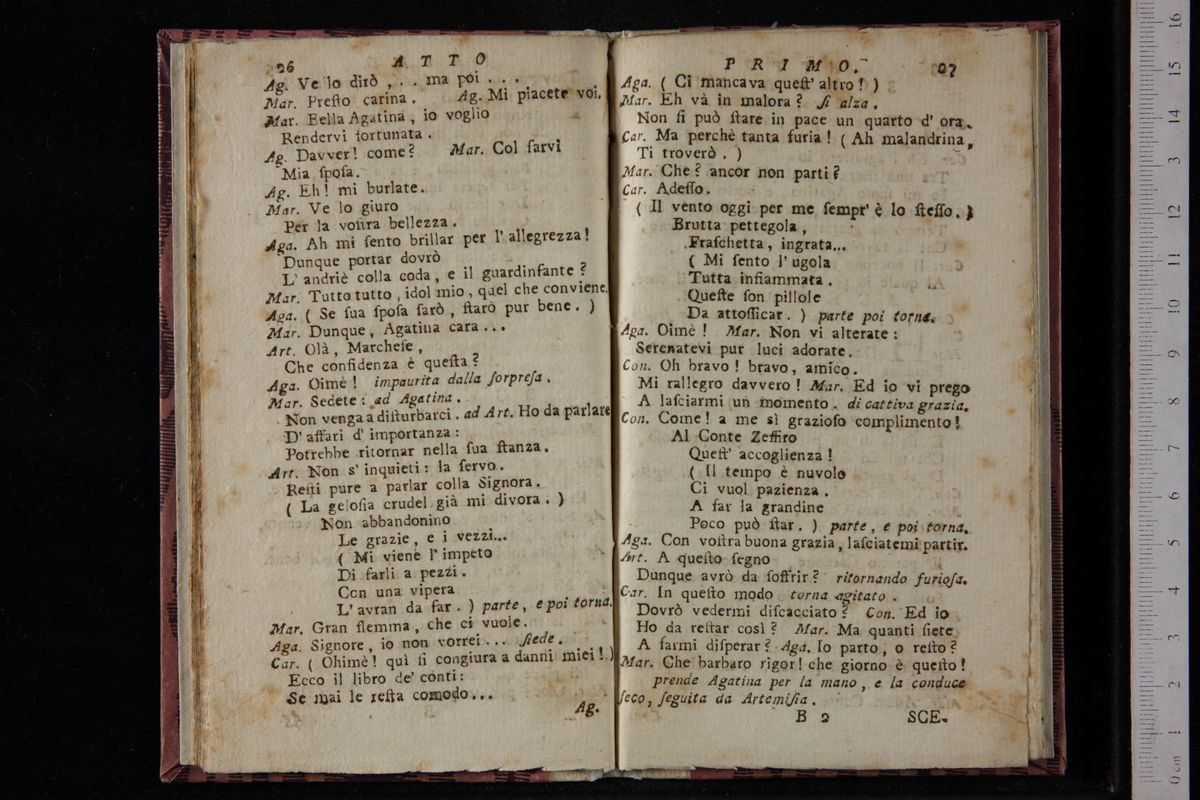 26 ATTO
Ag. Ve lo dirò , . . ma poi . . .
Mar. Preſto carina . Ag. Mi piacete voi.
Mar. Bella Agatina , io voglio
Rendervi fortunata .
Ag. Davver! come? Mar. Col farvi
Mia ſpoſa.
Ag. Eh! mi burlate.
Mar. Ve lo giuro
Per la voſtra bellezza .
Aga. Ah mi ſento brillar per l'allegrezza!
Dunque portar dovrò
L' andriè colla coda, e il guardinfante?
Mar. Tutto tutto , idol mio, quel che conviene.
Aga. ( Se ſua ſpoſa ſarò , ſtarò pur bene . )
Mar. Dunque, Agatina cara . . .
Art. Olà, Marcheſe,
Che confidenza è queſta?
Aga. Oimè! impaurita dalla ſorpreſa .
Mar. Sedete : ad Agatina .
Non venga a diſturbarci . ad Art. Ho da parlare
D' affari d' importanza :
Potrebbe ritornar nella ſua ſtanza.
Art. Non s' inquieti: la ſervo.
Reſti pure a parlar colla Signora.
( La geloſia crudel già mi divora . )
Non abbandonino
Le grazie, e i vezzi...
( Mi viene l' impeto
Di farli a pezzi.
Con una vipera
L' avran da far . ) parte, e poi torna.
Mar. Gran flemma, che ci vuole.
Aga. Signore, io non vorrei . . . ſiede .
Car. ( Ohimè! quì ſi congiura a danni miei! )
Ecco il libro de' conti:
Se mai le reſta comodo...
Ag.
PRIMO. 27
Aga. ( Ci mancava queſt' altro! )
Mar. Eh và in malora? ſi alza .
Non ſi può ſtare in pace un quarto d' ora.
Car. Ma perchè tanta furia! ( Ah malandrina,
Ti troverò . )
Mar. Che? ancor non parti?
Car. Adeſſo.
( Il vento oggi per me ſempr' è lo ſteſſo. )
Brutta pettegola ,
Fraſchetta, ingrata...
( Mi ſento l' ugola
Tutta infiammata .
Queſte ſon pillole
Da attoſſicar . ) parte poi torna.
Aga. Oimè! Mar. Non vi alterate :
Serenatevi pur luci adorate.
Con. Oh bravo! bravo, amico.
Mi rallegro davvero! Mar. Ed io vi prego
A laſciarmi un momento . di cattiva grazia.
Con. Come! a me sì grazioſo complimento!
Al Conte Zeffiro
Queſt' accoglienza!
( Il tempo è nuvolo
Ci vuol pazienza .
A far la grandine
Poco può ſtar . ) parte, e poi torna.
Aga. Con voſtra buona grazia, laſciatemi partir.
Art. A queſto ſegno
Dunque avrò da ſoffrir? ritornando furioſa.
Car. In queſto modo torna agitato .
Dovrò vedermi diſcacciato? Con. Ed io
Ho da reſtar così? Mar. Ma quanti ſiete
A farmi diſperar? Aga. Io parto, o reſto?
Mar. Che barbaro rigor! che giorno è queſto!
prende Agatina per la mano, e la conduce
ſeco, ſeguita da Artemiſia .
B 2 SCE-